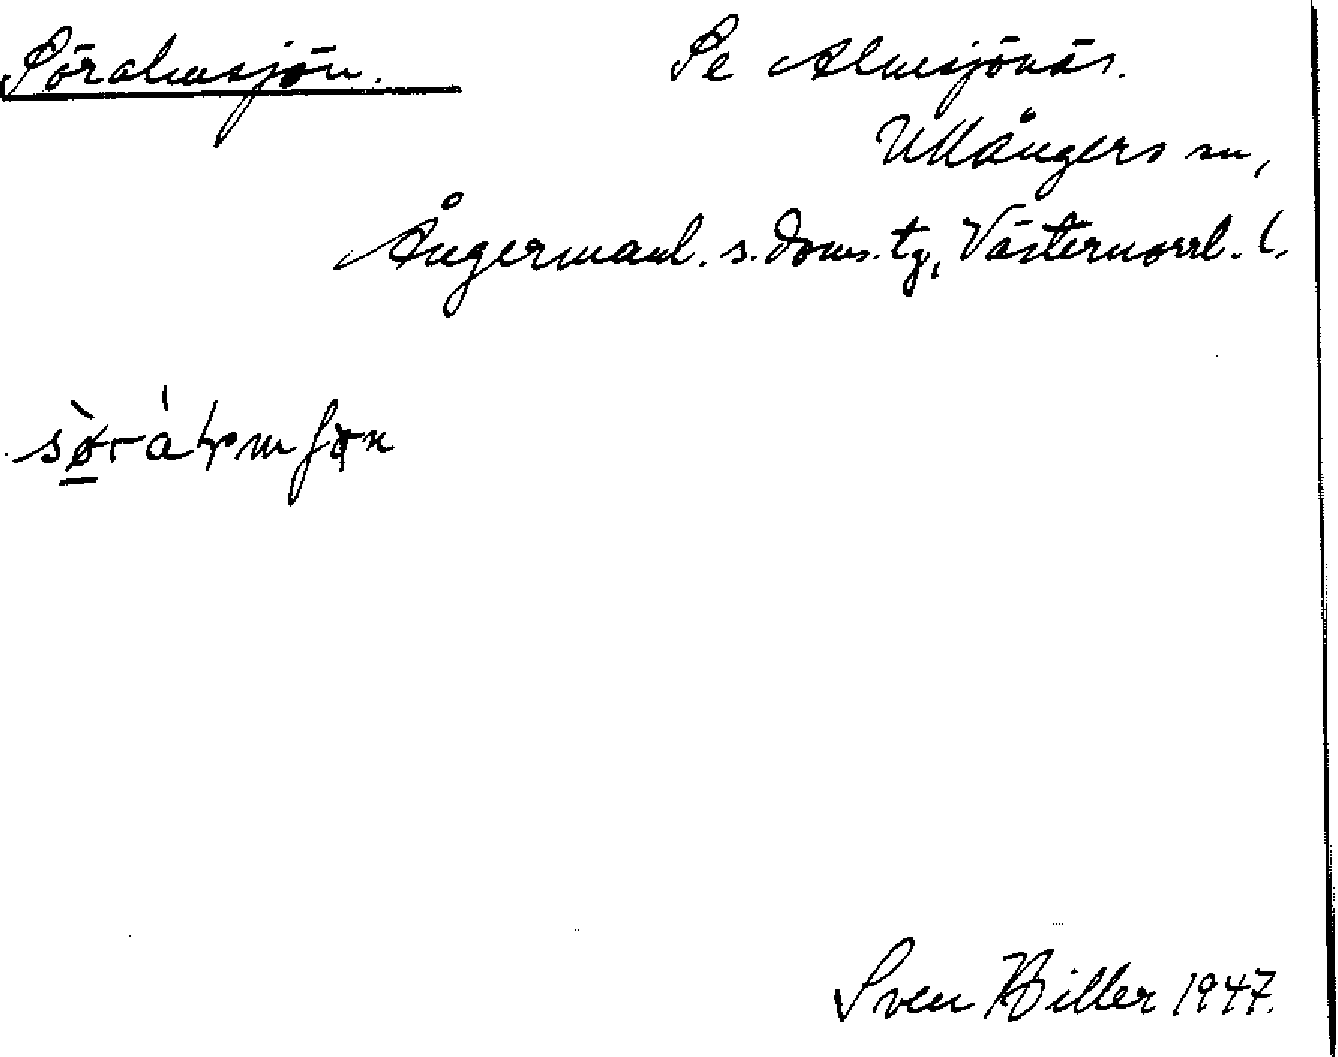 Söralmsjön. Se Almsjönäs.
Ullångers sn,
Ångermanl. s. doms. tg, Västernorrl. l.
Sven Hiller 1947.